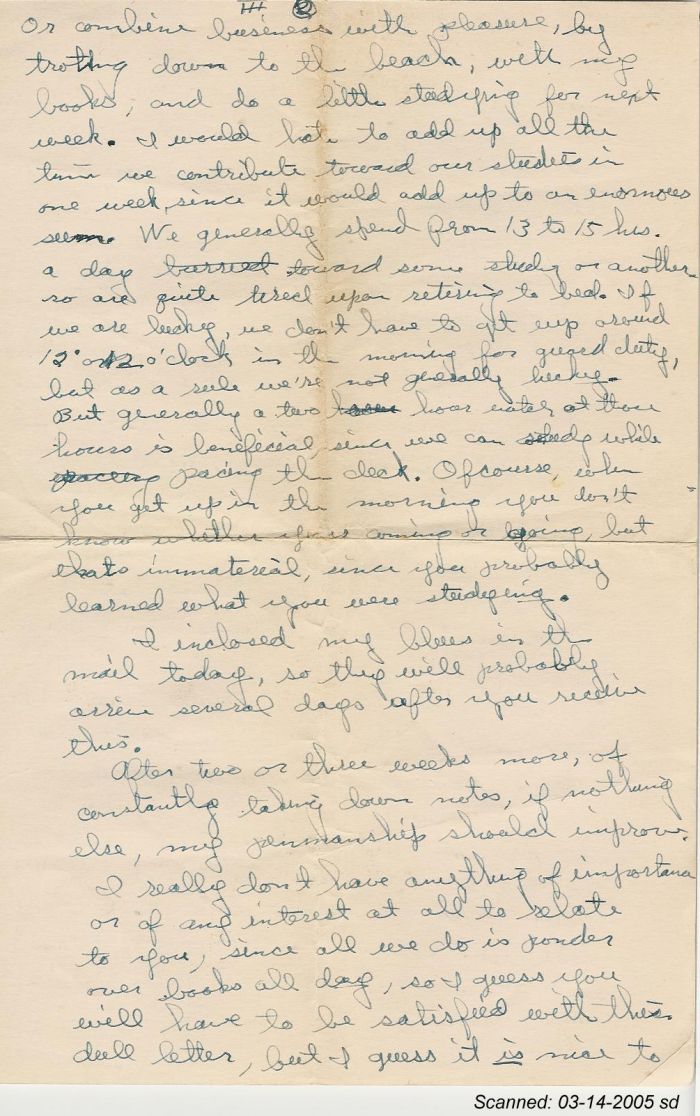 III 2
Or combine business with pleasure, by
trotting down to the beach, with my
books, and do a little studying for next
week. I would hate to add up all the
time we contribute toward our studies in
one week, since it would add up to an enormous
sum. We generally spend from 13 to 15 hrs.
a day toward some study or another
so are quite tired upon retiring to bed. If
we are lucky, we don't have to get up around
12 o'clock in the morning for guard duty,
but as a rule we're not generally lucky.
But generally a two hour watch at those
hours is beneficial, since we can study while
pacing the deck. Ofcourse, when
you get up in the morning you don't
know whether you're coming or going, but
thats immaterial, since you probably
learned what you were studying.
I inclosed my blues in the
mail today, so they will probably
arrive several days after you receive
this.
After two or three weeks more, of
constantly taking down notes, if nothing
else, my penmanship should improve.
I really don't have anything of importance
or of any interest at all to relate
to you, since all we do is ponder
over books all day, so I guess you
will have to be satisfied with this
dull letter, but I guess it is nice to
Scanned: 03-14-2005 sd